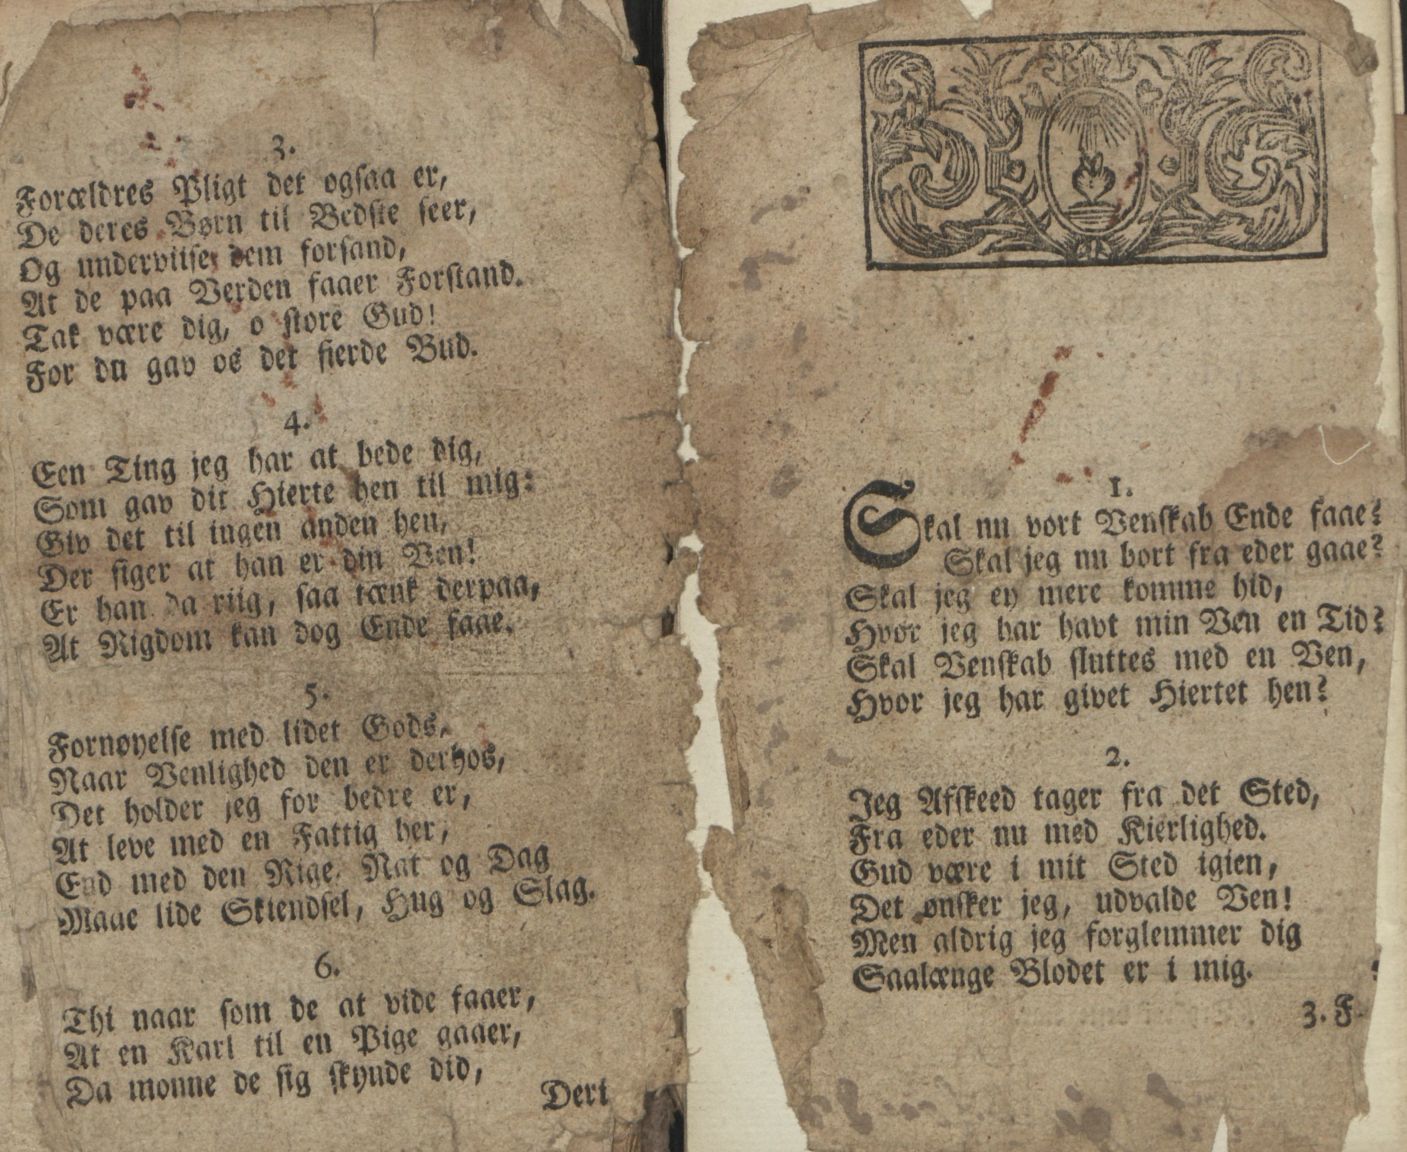 3.
Forældres Pligt det ogsaa er,
De deres Børn til Bedste seer,
Og underviise dem forsand,
At de paa Verden faaer Forstand.
Tak være dig, o store Gud!
For du gav os det fierde Bud.
4.
Een Ting jeg har at bede dig,
Som gav dit Hierte hen til mig:
Giv det til ingen anden hen,
Der siger at han er din Ven!
Er han da riig, saa tænk derpaa,
At Rigdom kan dog Ende faae.
5.
Fornøyelse med lidet Gods,
Naar Venlighed den er derhos,
Det holder jeg for bedre er,
At leve med en Fattig her,
End med den Rige, Nat og Dag
Maae lide Skiendsel, Hug og Slag.
6.
Thi naar som de at vide faaer,
At en Karl til en Pige gaaer,
Da monne de sig skynde did,
Deri
1.
Skal nu vort Venskab Ende faae?
Skal jeg nu bort fra eder gaae?
Skal jeg ey mere komme hid,
Hvor jeg har havt min Ven en Tid?
Skal Venskab sluttes med en Ven,
Hvor jeg har givet Hiertet hen?
2.
Jeg Afskeed tager fra det Sted,
Fra eder nu med Kierlighed.
Gud være i mit Sted igien,
Det ønsker jeg, udvalde Ven!
Men aldrig jeg forglemmer dig
Saalænge Blodet er i mig.
3. F.